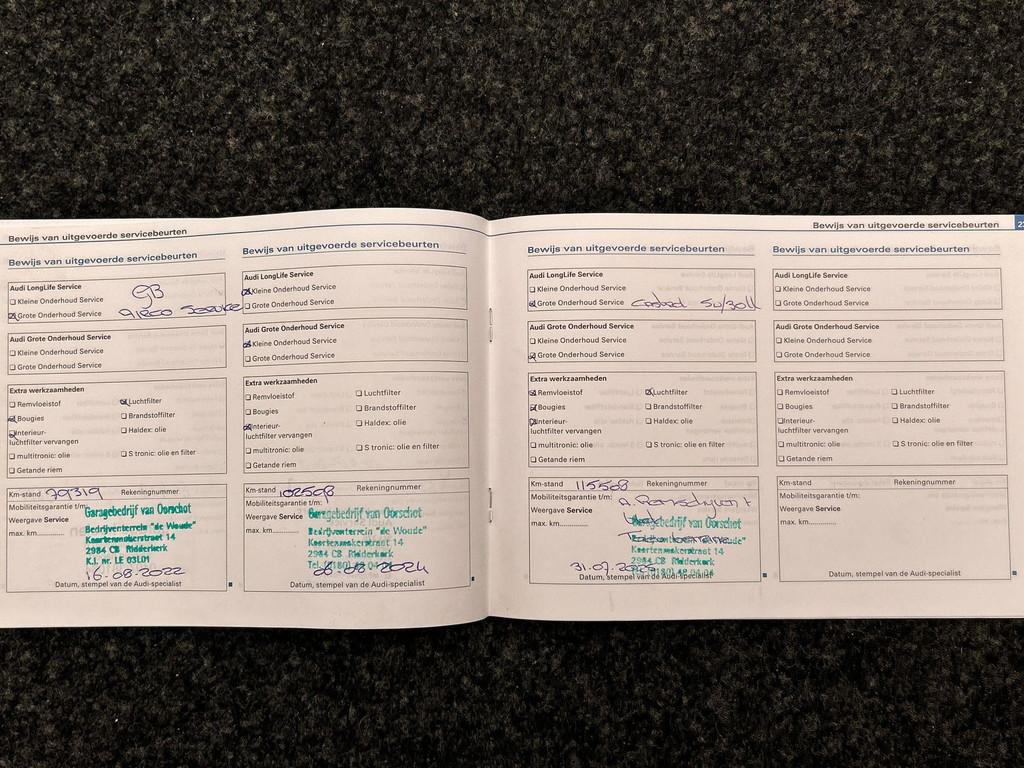 Bewijs van uitgevoerde servicebeurten
Bewijs van uitgevoerde servicebeurten
Audi LongLife Service
Kleine Onderhoud Service
Grote Onderhoud Service
GB
Service
Audi Grote Onderhoud Service
Kleine Onderhoud Service
Grote Onderhoud Service
Extra werkzaamheden
Remvloeistof
Luchtfilter
Bougies
Brandstoffilter
Interieur-
luchtfilter vervangen
Haldex: olie
multitronic: olie
S tronic: olie en filter
Getande riem
Km-stand 79319 Rekeningnummer
Mobiliteitsgarantie t/m:
Weergave Service
max. km
Garagebedrijf van Oorschot
Bedrijventerrein "de Woude"
Keurtenmakerstraat 14
2984 CB Ridderkerk
K.I. nr. LE 03L01
16-08-2022
Datum, stempel van de Audi-specialist
Bewijs van uitgevoerde servicebeurten
Audi LongLife Service
Kleine Onderhoud Service
Grote Onderhoud Service
Audi Grote Onderhoud Service
Kleine Onderhoud Service
Grote Onderhoud Service
Extra werkzaamheden
Remvloeistof
Luchtfilter
Bougies
Brandstoffilter
Interieur-
luchtfilter vervangen
Haldex: olie
multitronic: olie
S tronic: olie en filter
Getande riem
Km-stand 102598 Rekeningnummer
Mobiliteitsgarantie t/m:
Weergave Service
max. km
Garagebedrijf van Oorschot
Bedrijventerrein "de Woude"
Keurtenmakerstraat 14
2984 CB Ridderkerk
Datum, stempel van de Audi-specialist
Bewijs van uitgevoerde servicebeurten
Bewijs van uitgevoerde servicebeurten
Audi LongLife Service
Kleine Onderhoud Service
Grote Onderhoud Service
Audi Grote Onderhoud Service
Kleine Onderhoud Service
Grote Onderhoud Service
Extra werkzaamheden
Remvloeistof
Luchtfilter
Bougies
Brandstoffilter
Interieur-
luchtfilter vervangen
Haldex: olie
multitronic: olie
S tronic: olie en filter
Getande riem
Km-stand 115568 Rekeningnummer
Mobiliteitsgarantie t/m:
Weergave Service
max. km
Garagebedrijf van Oorschot
Keurtenmakerstraat 14
2984 CB Ridderkerk
Datum, stempel van de Audi-specialist
Bewijs van uitgevoerde servicebeurten
Audi LongLife Service
Kleine Onderhoud Service
Grote Onderhoud Service
Audi Grote Onderhoud Service
Kleine Onderhoud Service
Grote Onderhoud Service
Extra werkzaamheden
Remvloeistof
Luchtfilter
Bougies
Brandstoffilter
Interieur-
luchtfilter vervangen
Haldex: olie
multitronic: olie
S tronic: olie en filter
Getande riem
Km-stand Rekeningnummer
Mobiliteitsgarantie t/m:
Weergave Service
max. km
Datum, stempel van de Audi-specialist